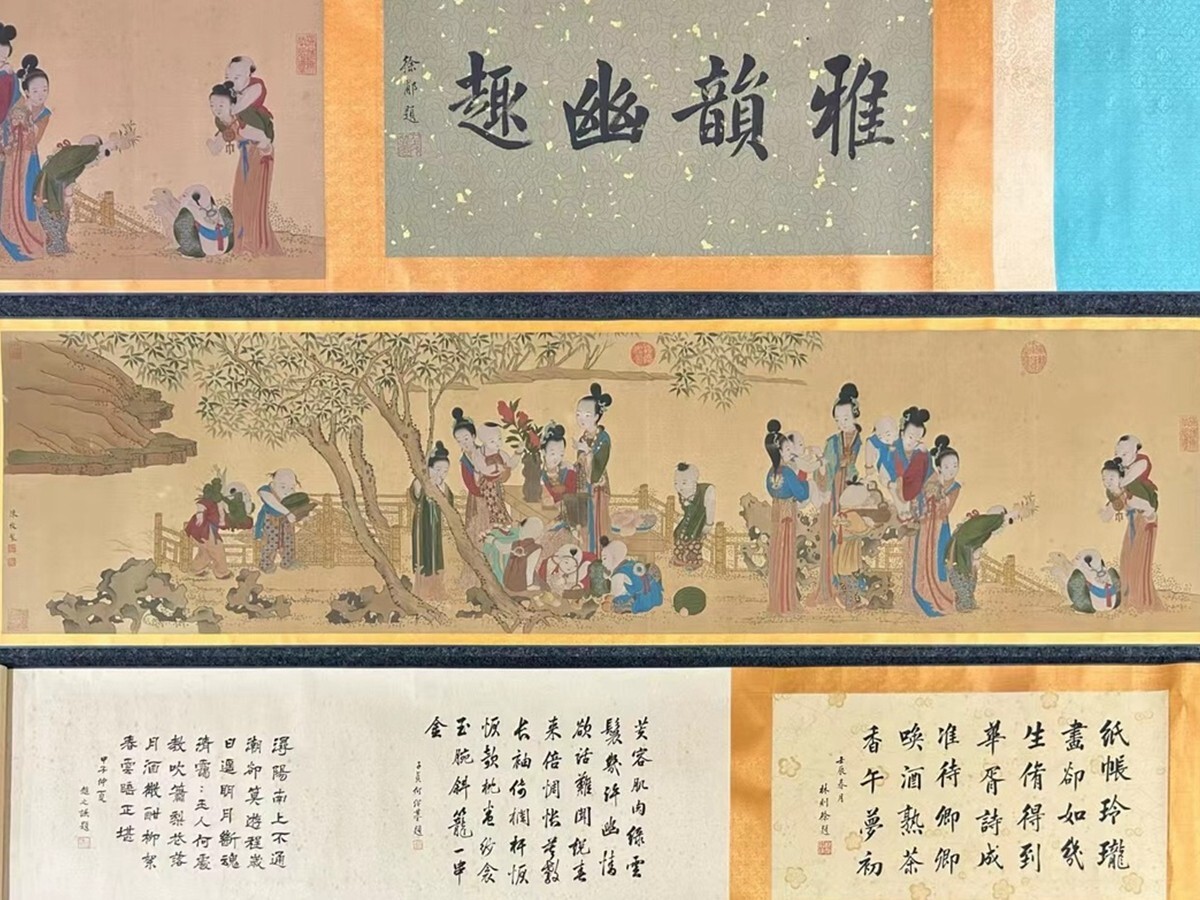 雅韻幽趣
徐郙題
紙帳玲瓏
畫卻如幾
生脩得到
華胥詩成
准待卿卿
喚酒熟茶
香午夢初
壬辰春月
林則徐題
芙容肌肉綠雲
鬟幾許幽情
欲話難聞説春
來倍惆悵莫教
長袖倚欄杆恹
恹欹枕卷紗衾
玉腕斜籠一串
金
子貞何紹基題
潯陽南上不通
潮卻算遊程歲
月遙明月斷魂
清靄:玉人何處
教吹簫梨花落
月酒微酣柳絮
春雲晤正堪
甲子仲夏
趙之謙題